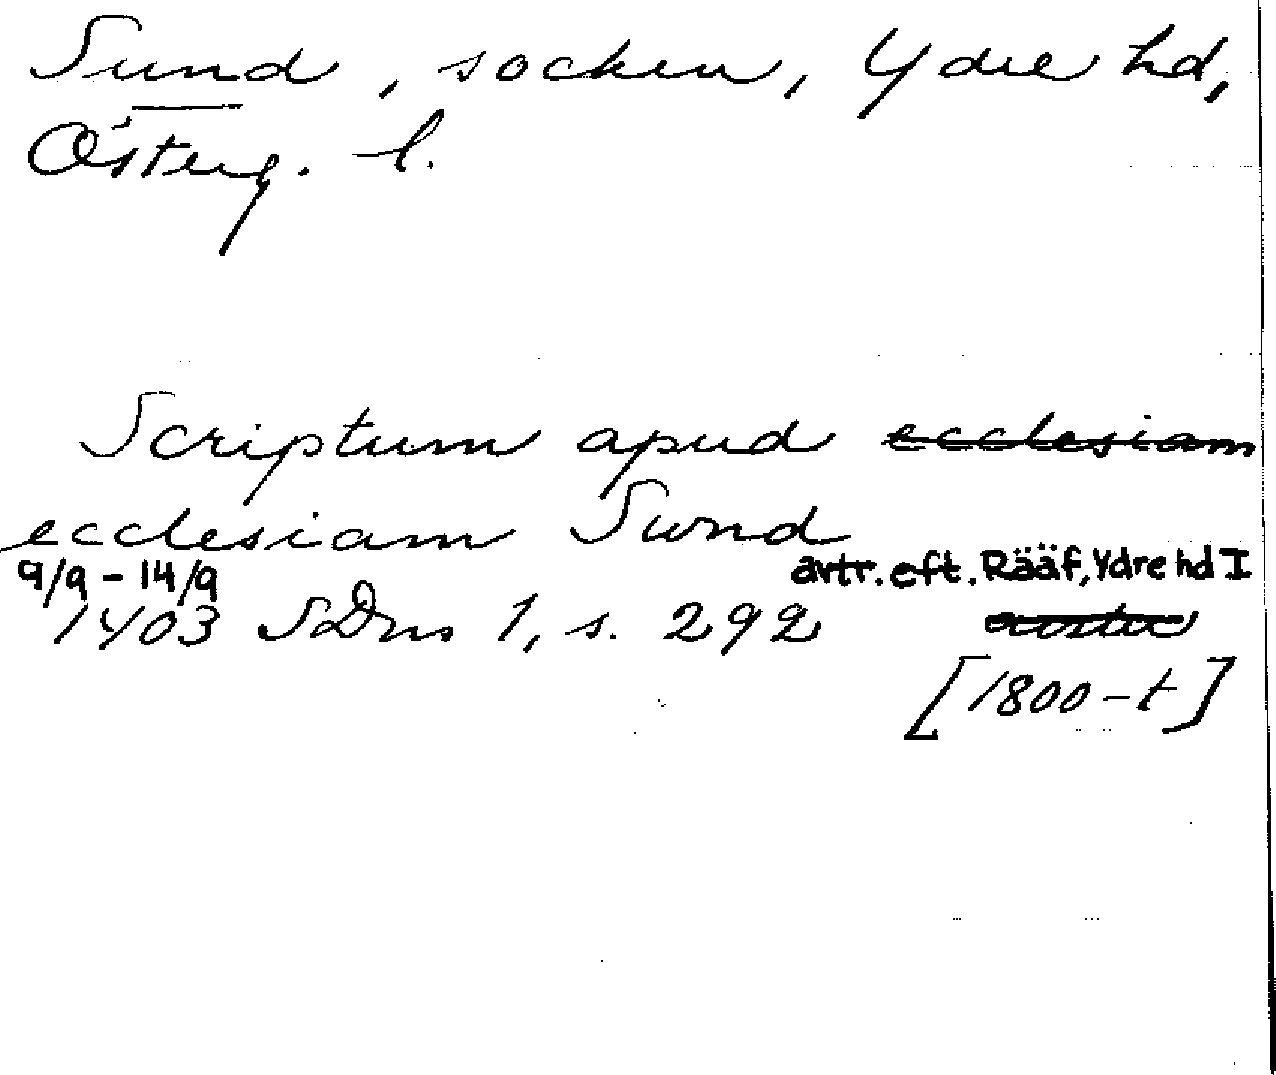 Sund, socken, Ydre hd,
Österg. l.
Scriptum apud ecclesiam
ecclesiam Swnd
9/9 - 14/9 avtr. eft. Rääf, Ydre hd I
1403 SDns 1, s. 292
[1800-t]